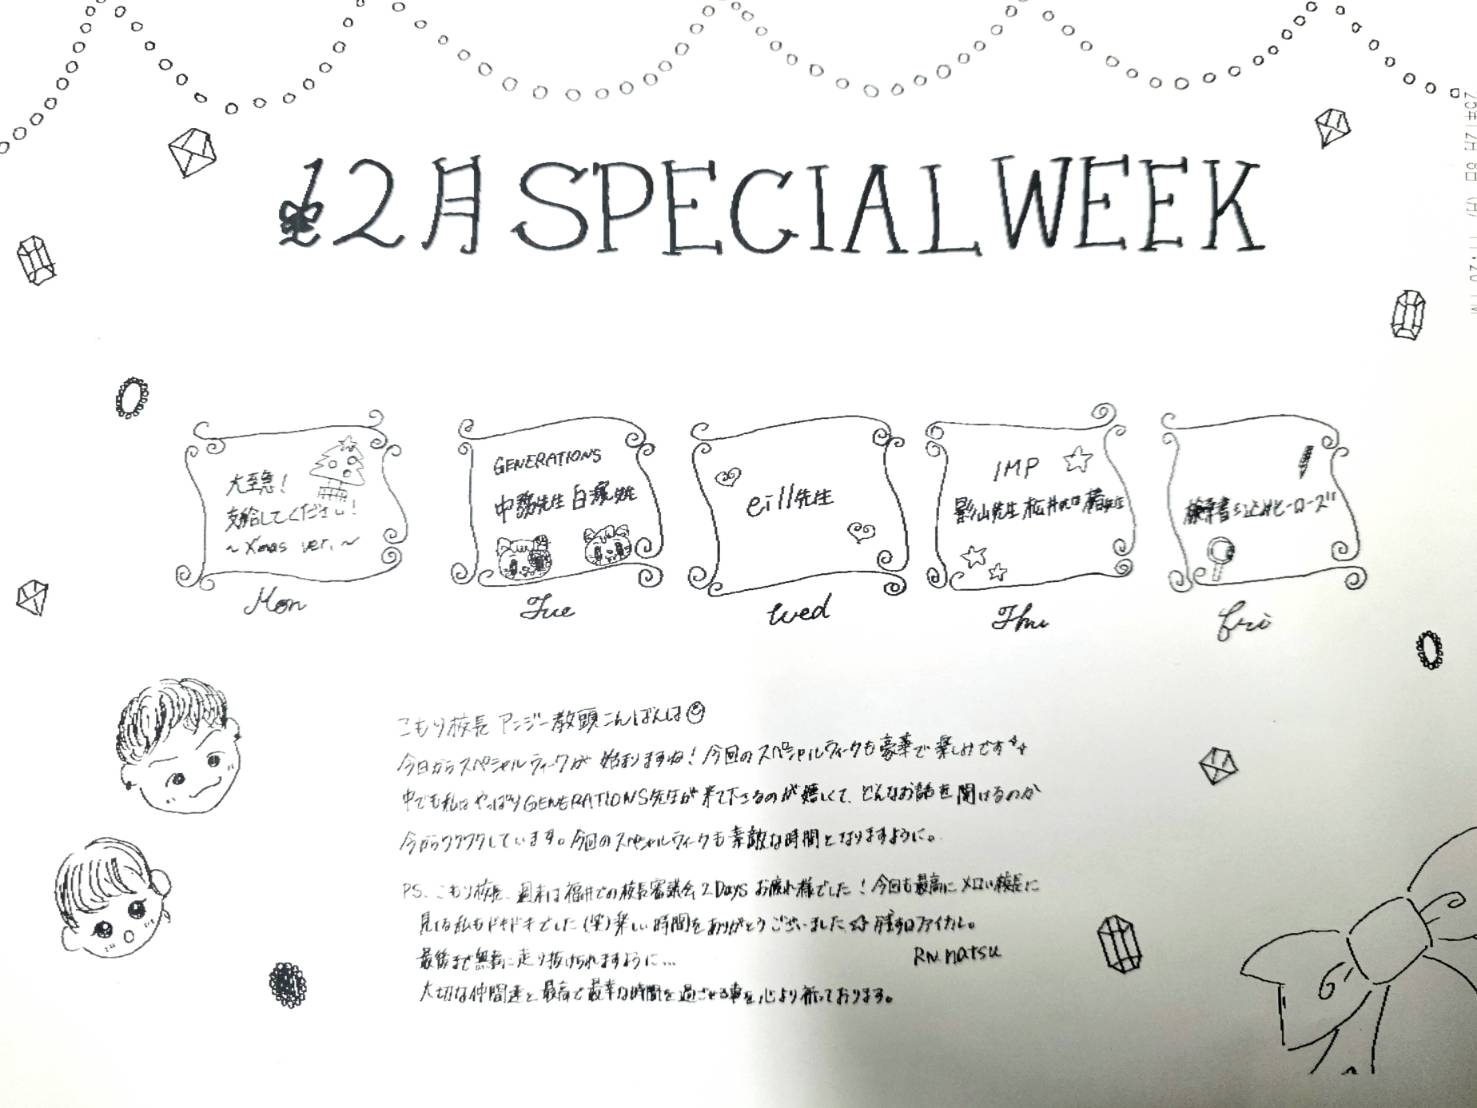 12月 SPECIAL WEEK
大至急!
支給してください!
～Xmas ver.～
Mon
GENERATIONS
中務先生 白濱先生
Tue
eill先生
Wed
IMP
影山先生 松井先生 椿先生
Thu
ヒーローズ
Fri
こもり校長 アンジー教頭こんばんは
今日からスペシャルウィークが 始まりますね! 今回のスペシャルウィークも豪華で楽しみです
中でも私はやっぱりGENERATIONS先生が来て下さるのが嬉しくて、どんなお話を聞けるのか
今からワクワクしています。今回のスペシャルウィークも素敵な時間となりますように。
PS. こもり校長、週末は福井での校長審議会2Daysお疲れ様でした! 今回も最高にメロい校長に
見てる私もドキドキでした(笑)楽しい時間をありがとうございました ファイナル。
最後まで無事に走り抜けられますように...
RN.natsu
大切な仲間達と最高で最幸な時間を過ごせる事を心より祈っております。